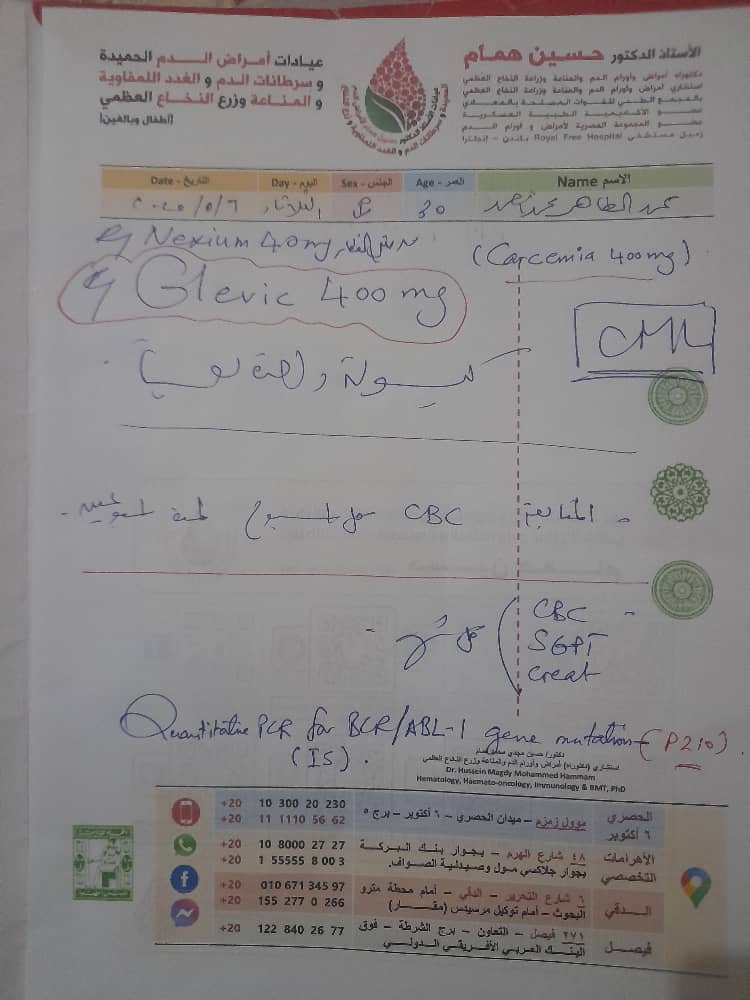 الأستاذ الدكتور حسين همام
دكتوراه أمراض وأورام الدم والمناعة وزراعة النخاع العظمي
استشاري أمراض وأورام الدم والمناعة وزراعة النخاع العظمي
بالمجمع الطبي للقوات المسلحة بالمعادي
عضو الأكاديمية الطبية العسكرية
عضو المجموعة المصرية لأمراض و أورام الدم
زميل مستشفى Royal Free Hospital بلندن - إنجلترا
عيادات أمراض الدم الحميدة
و سرطانات الدم و الغدد اللمفاوية
و المناعة وزرع النخاع العظمي
(أطفال وبالغين)
الاسم Name
العمر - Age
الجنس - Sex
اليوم - Day
التاريخ - Date
محمد الطاهر محمد
30
الثلاثاء
٢٠٢٥/٥/٦
Nexium 40mg
(Carcemia 400mg)
Glevic 400mg
CML
المتابعة CBC كل أسبوع لمدة
CBC
SGPT
creat
كل شهر
Quantitative PCR for BCR/ABL-1 gene mutation (P210).
(IS).
دكتور/ حسين مجدي محمد همام
استشاري (دكتوراه) أمراض وأورام الدم والمناعة وزرع النخاع العظمي
Dr. Hussein Magdy Mohammed Hammam
Hematology, Haemato-oncology, Immunology & BMT, PhD
الحصري ٦ أكتوبر
موول زمزم – ميدان الحصري – ٦ أكتوبر – برج ٥
+20 10 300 20 230
+20 11 1110 56 62
الأهرامات التخصصي
٤٨ شارع الهرم – بجوار بنك البركة
بجوار جلاكسي مول وصيدلية الصواف.
+20 10 8000 27 27
+20 1 55555 8 00 3
الدقي
٦ شارع التحرير – الدقي – أمام محطة مترو
البحوث – أمام توكيل مرسيدس (مقار)
+20 010 671 345 97
+20 155 277 0 266
فيصل
٢٧١ فيصل – التعاون – برج الشرطة – فوق
البنك العربي الأفريقي الدولي
+20 122 840 26 77